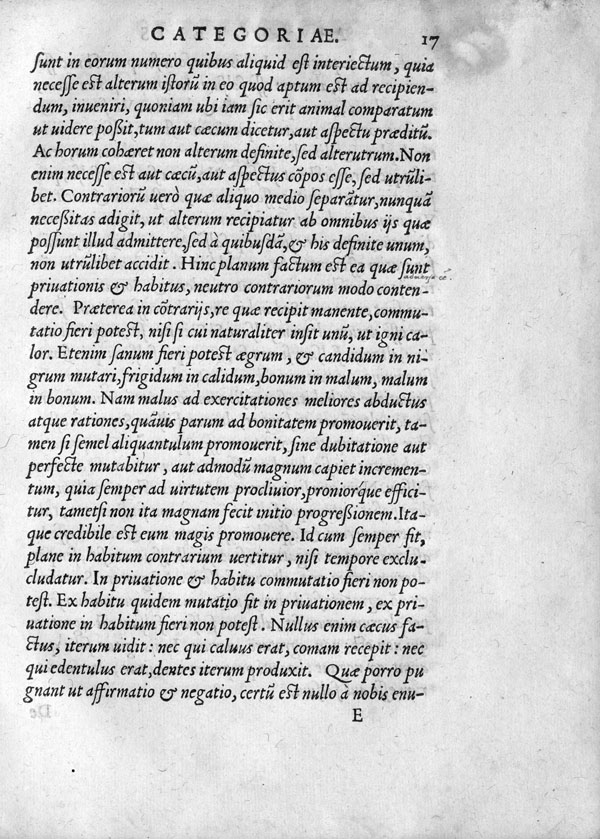 CATEGORIAE. 17
sunt in eorum numero quibus aliquid est interiectum, quia
necesse est alterum istorũ in eo quod aptum est ad recipien-
dum, inueniri, quoniam ubi iam sic erit animal comparatum
ut uidere poßit, tum aut cæcum dicetur, aut aspectu præditũ.
Ac horum cohæret non alterum definite, sed alterutrum. Non
enim necesse est aut cæcũ, aut aspectus cõpos esse, sed utrũli-
bet. Contrariorũ uerò quæ aliquo medio separãtur, nunquã
neceßitas adigit, ut alterum recipiatur ab omnibus ijs quæ
possunt illud admittere, sed à quibusdã, & his definite unum,
non utrũlibet accidit. Hinc planum factum est ea quæ sunt
priuationis & habitus, neutro contrariorum modo conten-
dere. Præterea in cõtrarijs, re quæ recipit manente, commu-
tatio fieri potest, nisi si cui naturaliter insit unũ, ut igni ca-
lor. Etenim sanum fieri potest ægrum, & candidum in ni-
grum mutari, frigidum in calidum, bonum in malum, malum
in bonum. Nam malus ad exercitationes meliores abductus
atque rationes, quãuis parum ad bonitatem promouerit, ta-
men si semel aliquantulum promouerit, sine dubitatione aut
perfecte mutabitur, aut admodũ magnum capiet incremen-
tum, quia semper ad uirtutem procliuior, proniorq́ue effici-
tur, tametsi non ita magnam fecit initio progreßionem. Ita-
que credibile est eum magis promouere. Id cum semper fit,
plane in habitum contrarium uertitur, nisi tempore exclu-
cludatur. In priuatione & habitu commutatio fieri non po-
test. Ex habitu quidem mutatio fit in priuationem, ex pri-
uatione in habitum fieri non potest. Nullus enim cæcus fa-
ctus, iterum uidit: nec qui caluus erat, comam recepit: nec
qui edentulus erat, dentes iterum produxit. Quæ porro pu
gnant ut affirmatio & negatio, certũ est nullo à nobis enu-
E